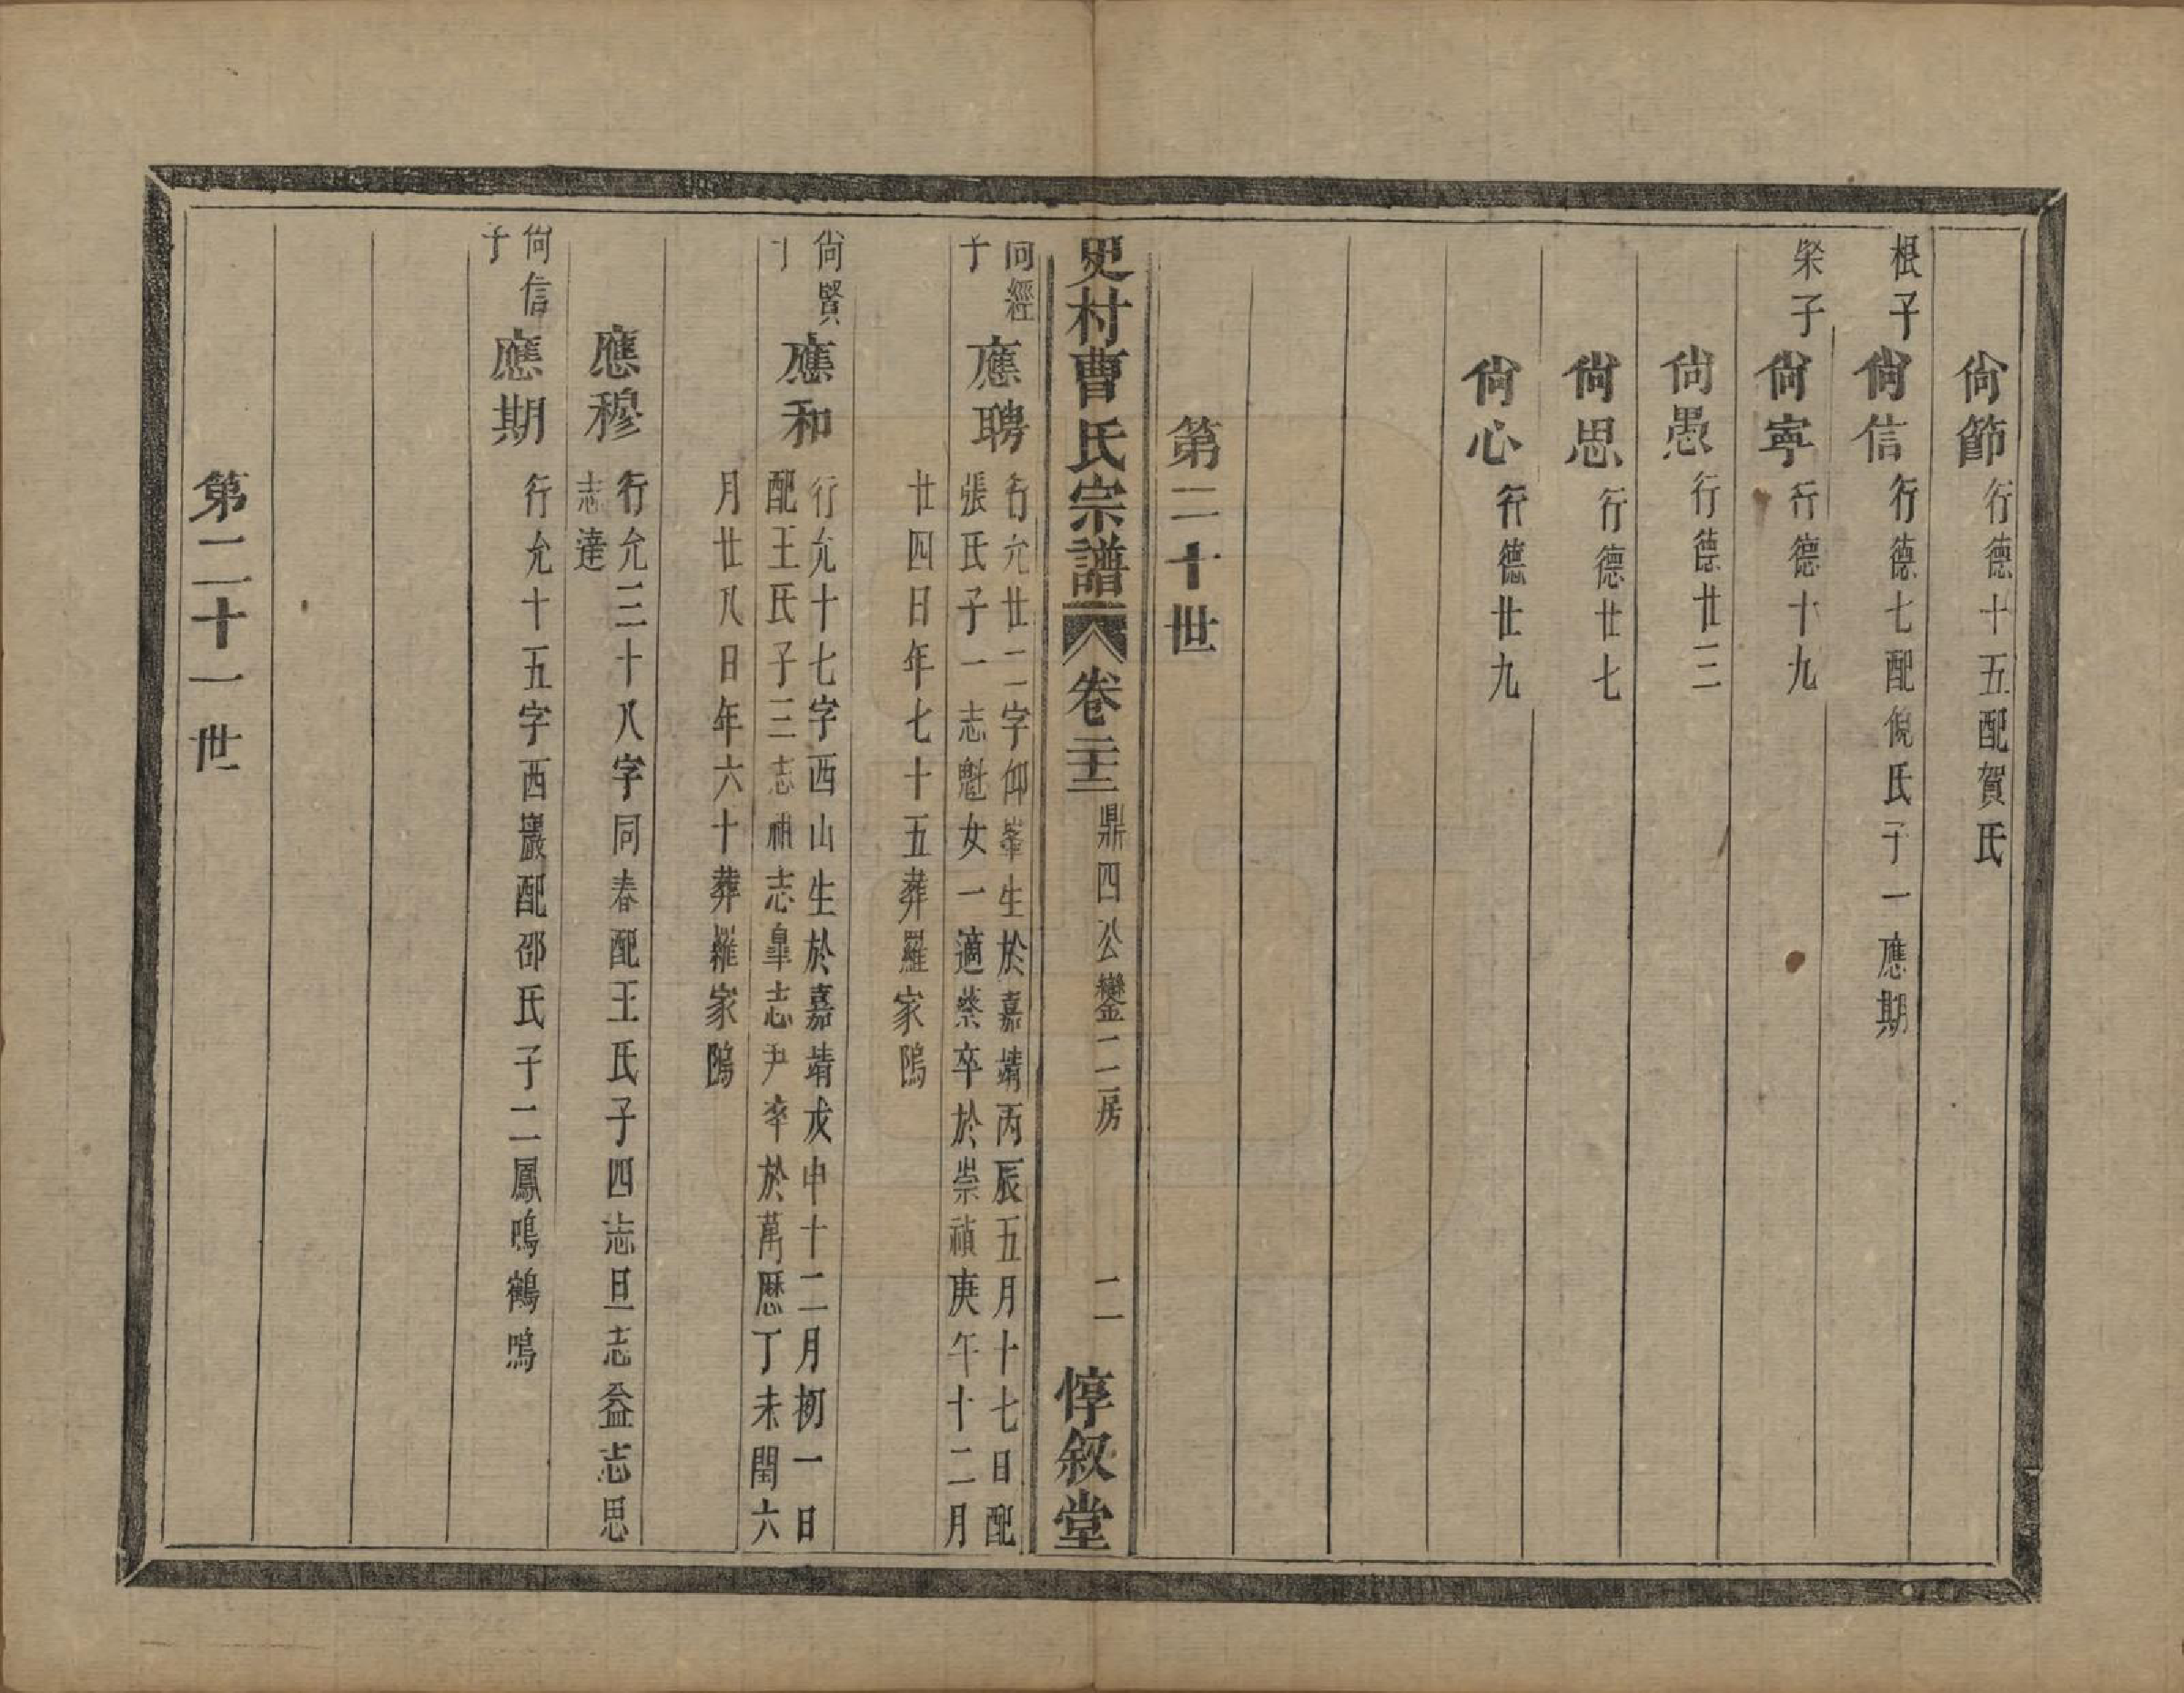 尙節行德十五配賀氏
根子尙信行德七配倪氏子一應期
榮子尙寧行德十九
尙愚行德廿三
尙思行德廿七
尙心行德廿九
第二十世
史村曹氏宗譜 卷二十三 鼎四公鑾二房 二 惇叙堂
尙經子應聘行允廿二字仰峯生於嘉靖丙辰五月十七日配
張氏子一志魁女一適蔡卒於崇禎庚午十二月
廿四日年七十五葬羅家隖
尙賢子應和行允十七字西山生於嘉靖戊申十二月初一日
配王氏子三志補志皐志尹卒於萬歷丁未閏六
月廿八日年六十葬羅家隖
應穆行允三十八字同春配王氏子四志旦志益志思
志達
尙信子應期行允十五字西巖配邵氏子二鳳鳴鶴鳴
第二十一世